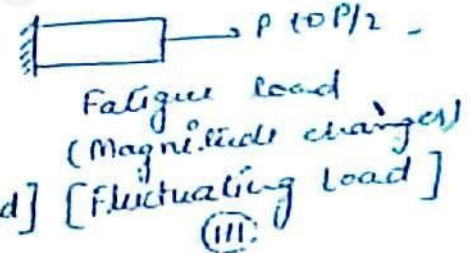 P to P/2 -
Fatigue load
(Magnitude changes)
d] [Fluctuating load]
(III)